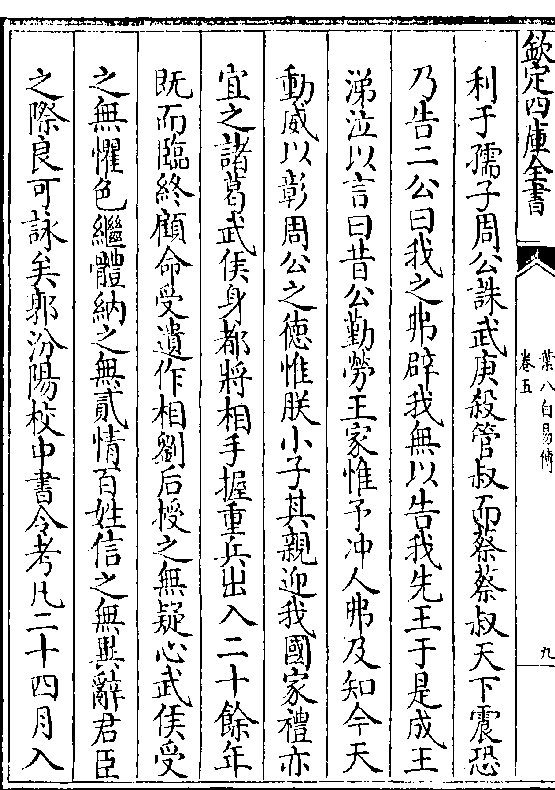 欽定四庫全書
葉八白易傳
卷五
九
利于孺子周公誅武庚殺管叔而蔡蔡叔天下震恐
乃告二公曰我之弗辟我無以告我先王于是成王
涕泣以言曰昔公勤勞王家惟予冲人弗及知今天
動威以彰周公之德惟朕小子其親迎我國家禮亦
宜之諸葛武侯身都將相手握重兵出入二十餘年
既而臨終顧命受遺作相劉后授之無疑心武侯受
之無懼色繼體納之無貳情百姓信之無異辭君臣
之際良可詠矣郭汾陽校中書令考凡二十四月入